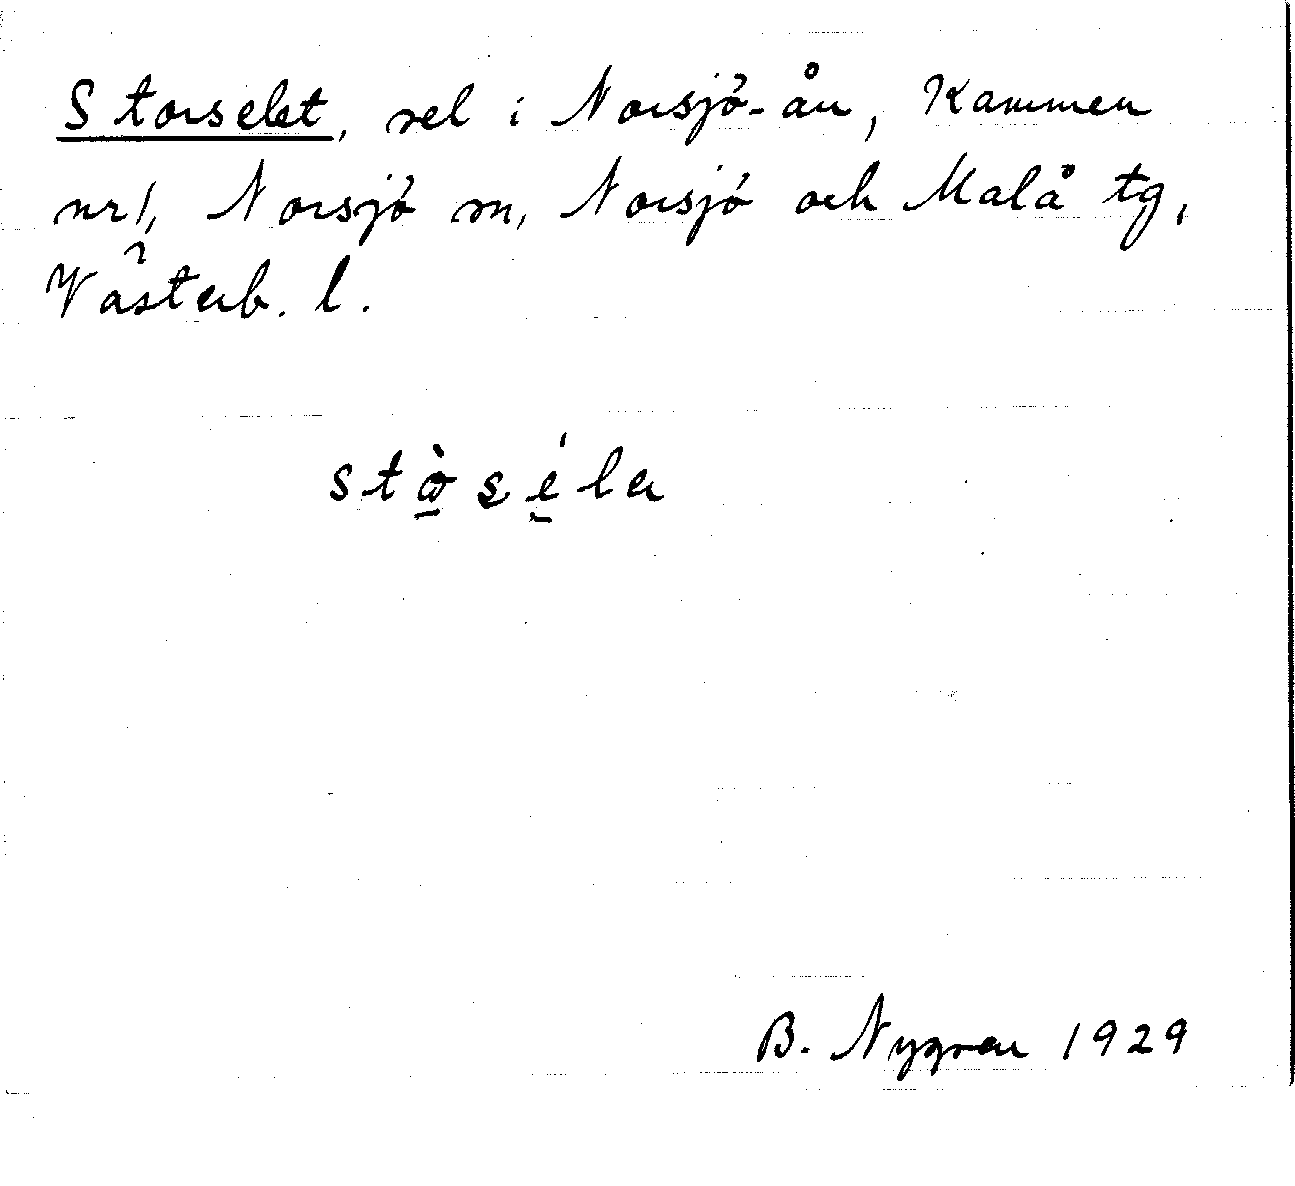 Storselet, sel i Norsjö-ån, Kammen
nr 1, Norsjö sn, Norsjö och Malå tg,
Västerb. l.
B. Nygren 1929